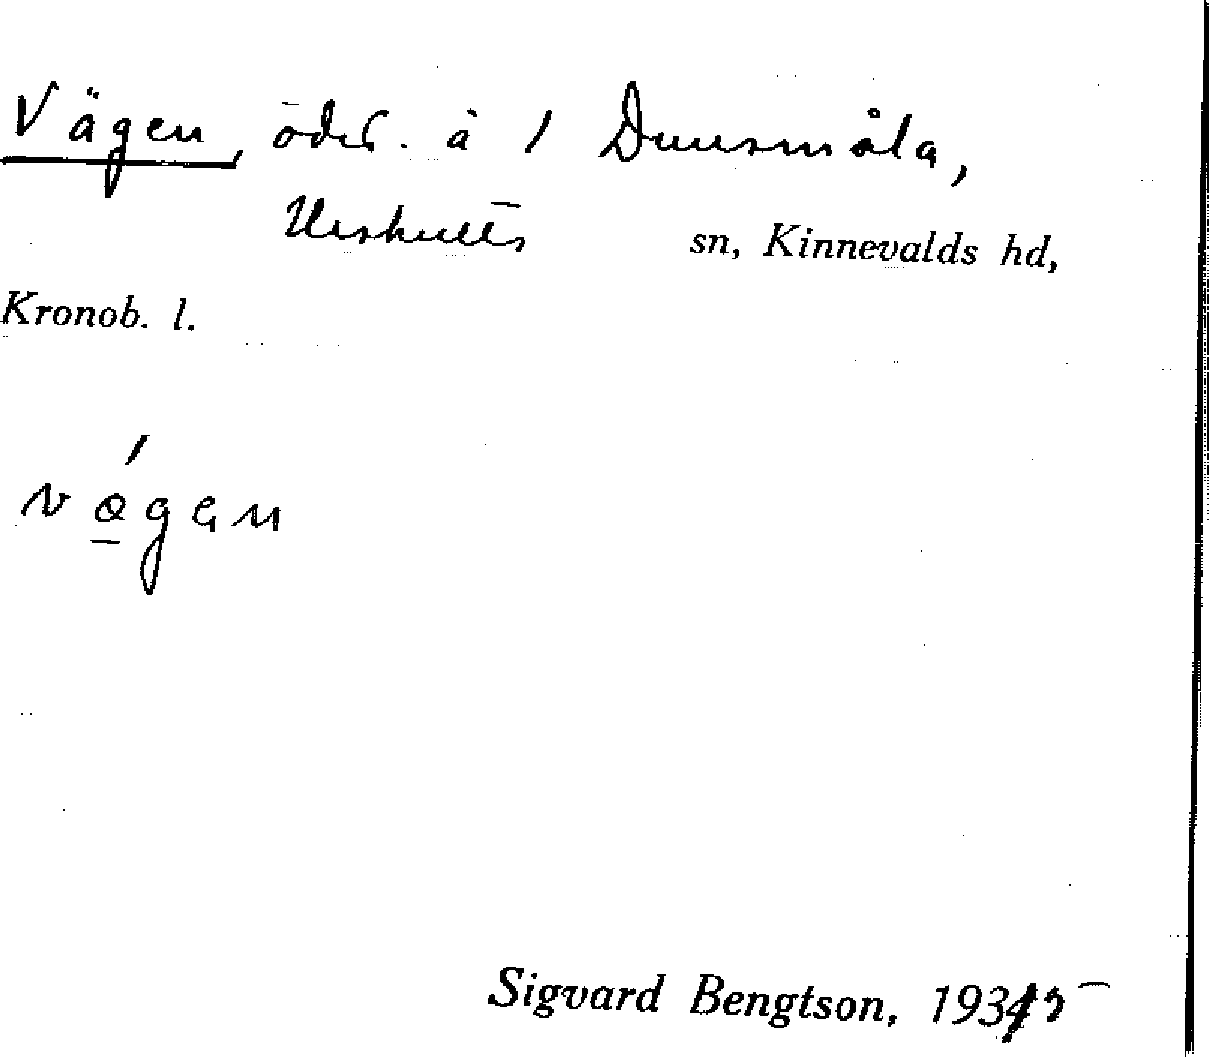 Vägen, ödesl. å 1 Dunsmåla,
Urshults sn, Kinnevalds hd,
Kronob. l.
Sigvard Bengtson, 1935